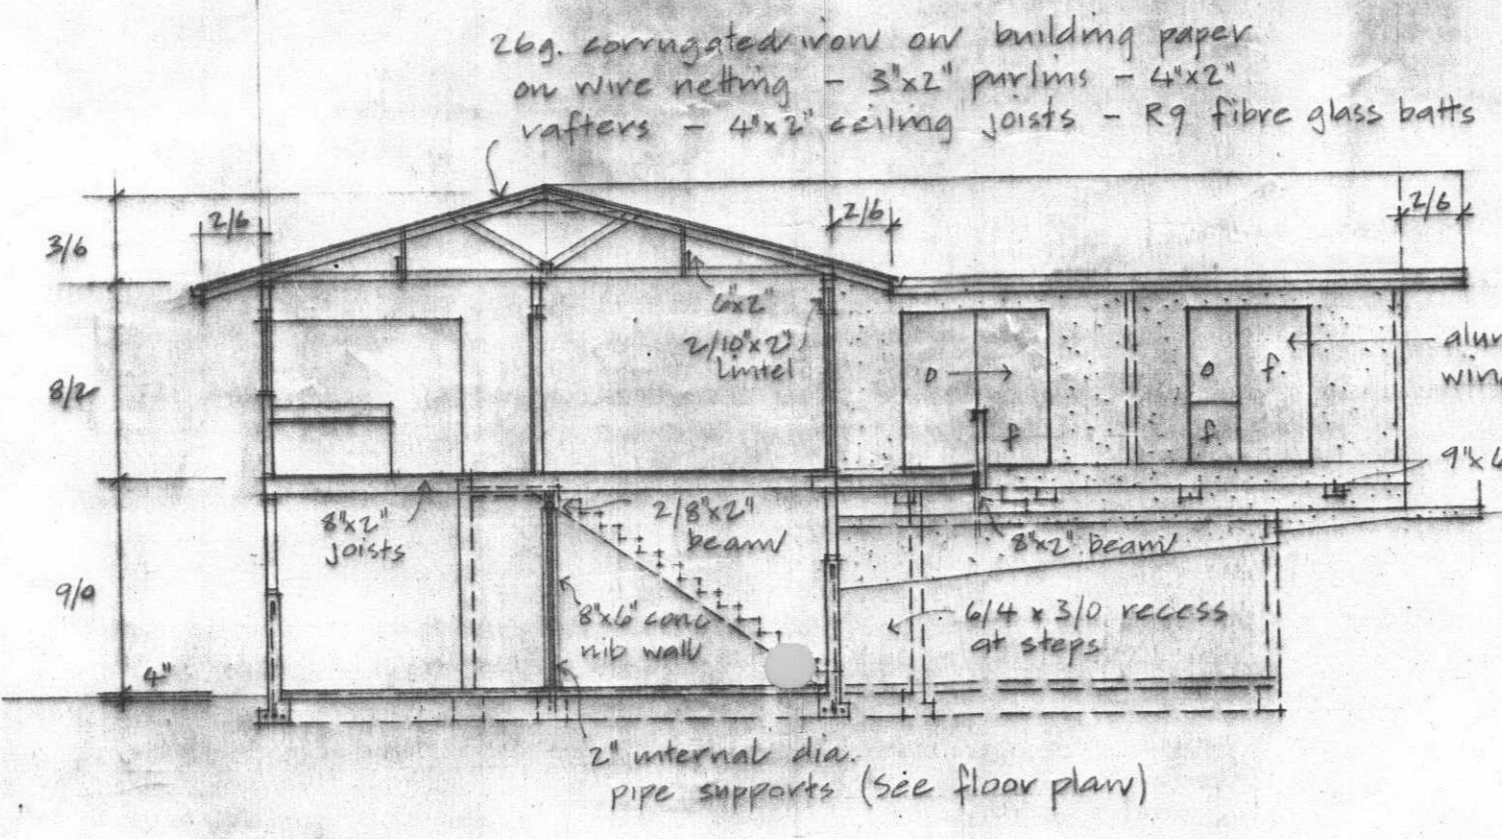 26g. corrugated iron on building paper
on wire netting - 3"x2" purlins - 4"x2"
rafters - 4"x2" ceiling joists - R9 fibre glass batts
2/6
2/6
2/6
3/6
6"x2"
2/10"x2"
lintel
8/2
o
f
o
f.
f.
alum
wind
9"x6
8"x2"
joists
2/8"x2"
beam
8"x2" beam
9/0
8"x6" conc
nib wall
6/4 x 3/0 recess
at steps
4"
2" internal dia.
pipe supports (see floor plan)